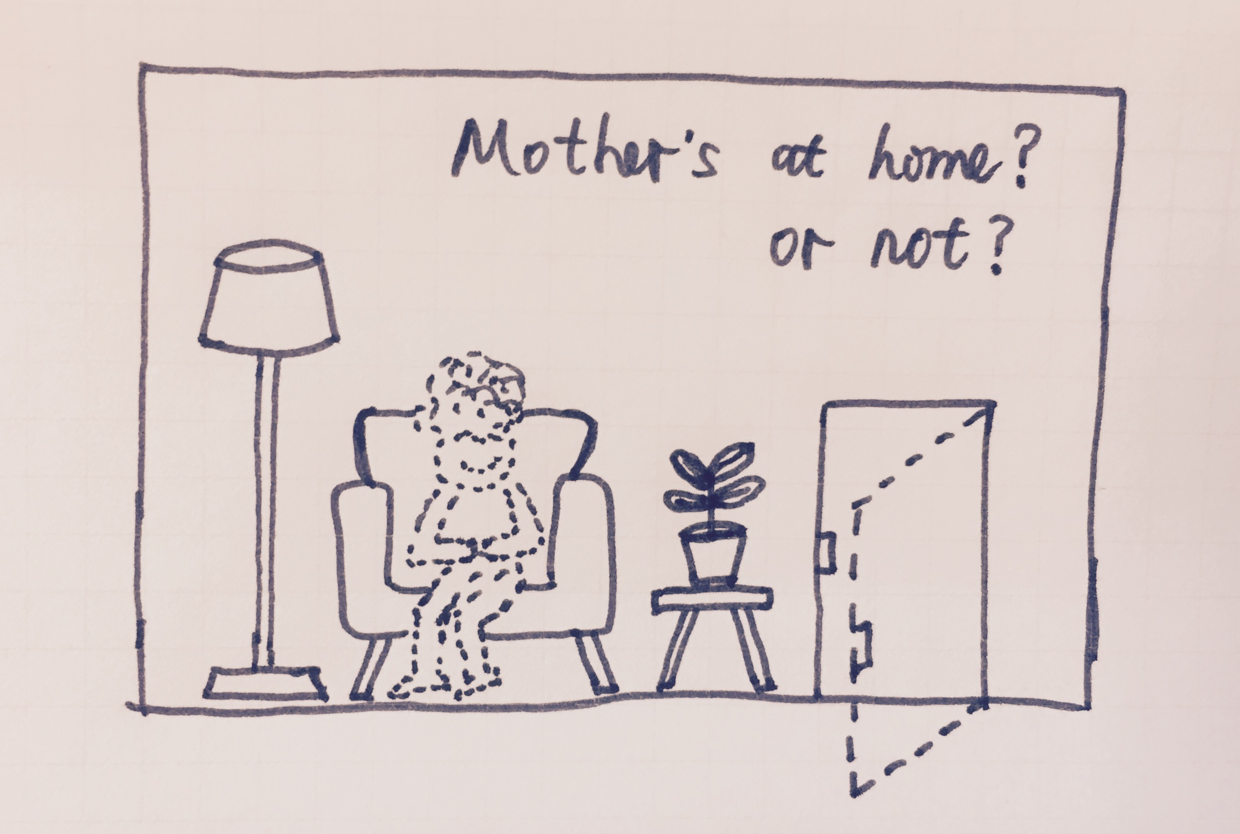 Mother's at home?
or not?